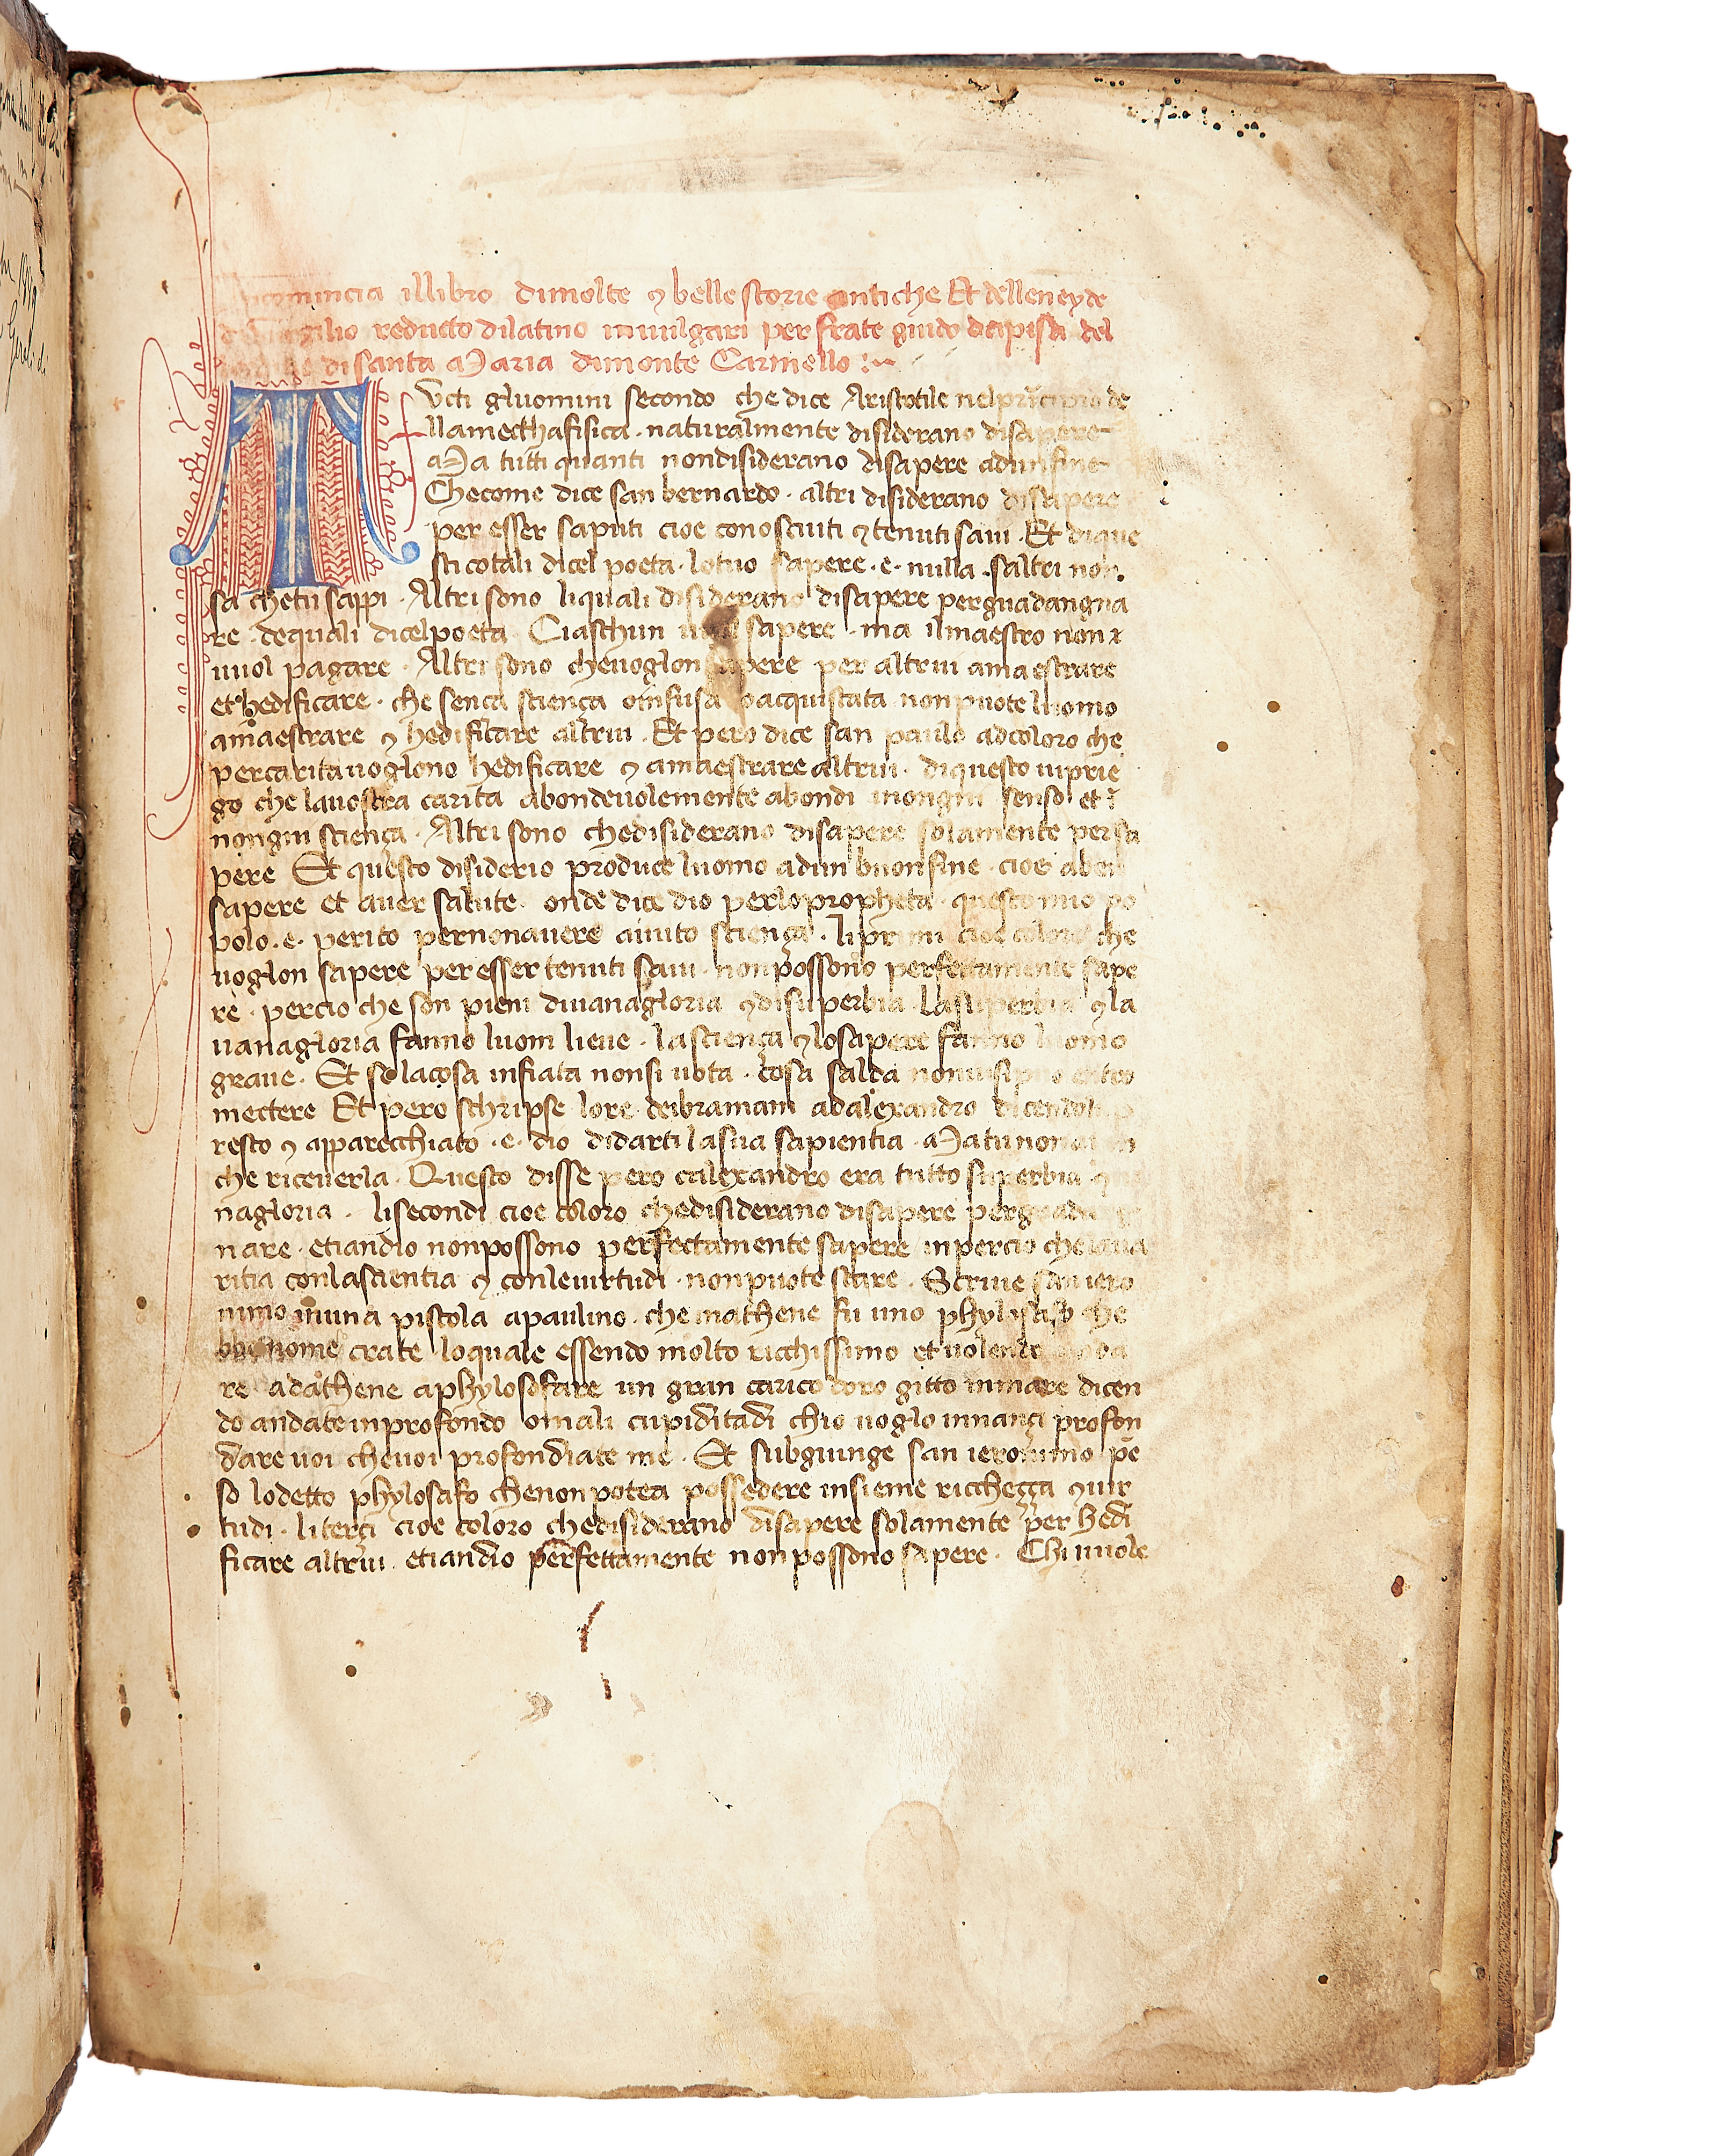 comincia illibro dimolte ⁊ belle storie antiche Et delleneyde
di Virgilio reducto dilatino inuulgari per frate guido dapisa del
di santa Maria dimonte Carmello
Tvcti gluomini secondo che dice Aristotile nelprincipio de
llamecthafisica · naturalmente disiderano disapere
Ma tutti quanti nondisiderano disapere adunfine
Checome dice san bernardo · altri disiderano dissapere
per esser saputi cioe conosciuti ⁊ tenuti saui · Et dique
sti cotali dicel poeta · lotuo sapere · e · nulla · saltri non
sa chetu sappi · Altri sono liquali disiderano disapere perguadangna
re · dequali dicelpoeta Ciaschun uuol sapere · ma ilmaestro non
uuol pagare · Altri sono cheuoglon sapere per altrui amaestrare
et hedificare · che sença sciença oinfusa oacquistata nonpuote luomo
amaestrare ⁊ hedificare altrui · Et pero dice san paulo adcoloro che
percarita uoglono hedificare ⁊ amaestrare altrui · diquesto uiprie
go che lauostra carita abondeuolemente abondi inongni senso et ī
nongni sciença · Altri sono chedisiderano disapere solamente persa
pere Et questo disiderio produce luomo adun buonfine · cioe aben
sapere et auer salute · onde dice dio perlopropheta · questo mio po
polo · e · perito pernonauere auuto sciença · liprimi cioe coloro che
uoglon sapere per esser tenuti saui · nonpossono perfettamente sape
re · percio che son pieni diuanagloria ⁊ disuperbia · Lasuperbia ⁊ la
uanagloria fanno luom lieue · lasciença ⁊ losapere fanno luomo
graue · Et se lacosa infiata nonsi uota · cosa salda nonuisipuo entro
mectere Et pero schripse lore deibramani adalexandro dicendo
resto ⁊ apparecchiato · e · dio didarti lasua sapientia · Matunon
che riceuerla · Questo disse pero calexandro era tutto superbia
nagloria · lisecondi cioe coloro chedisiderano disapere perguadangn
nare · etiandio nonpossono perfectamente sapere inpercio che laua
ritia conlascientia ⁊ conleuirtudi · nonpuote stare · Scriue san iero
nimo inuna pistola apaulino · che inathene fu uno phylosafo che
bbe nome crate loquale essendo molto ricchissimo et uolendo
re adathene aphylosofare un gran carico doro gitto inmare dicen
do andate inprofondo omali cupiditadi chio uoglo innançi profon
dare uoi cheuoi profondiate me · Et subgiunge san ieronimo pē
so lodetto phylosafo chenonpotea possedere insieme ricchecça ⁊ uir
tudi · literçi cioe coloro chedisiderano disapere solamente per hedi
ficare altrui etiandio perfettamente nonpossono sapere · Chi uuole